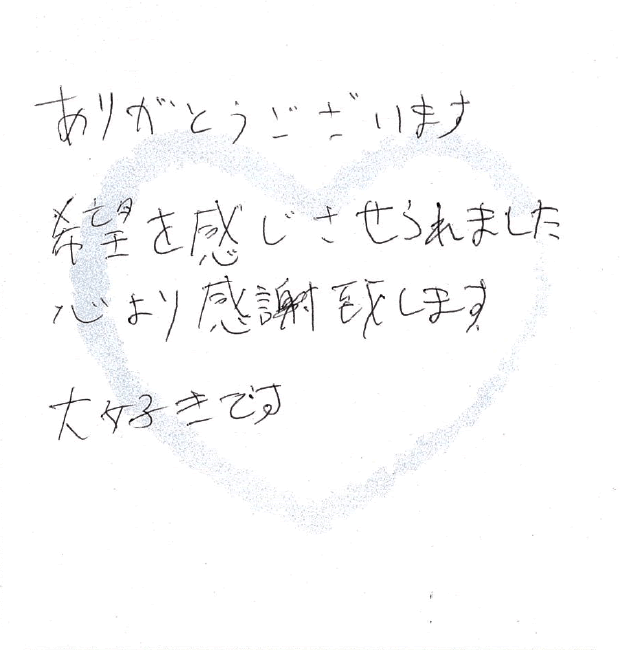 ありがとうございます
希望を感じさせられました
心より感謝致します
大好きです